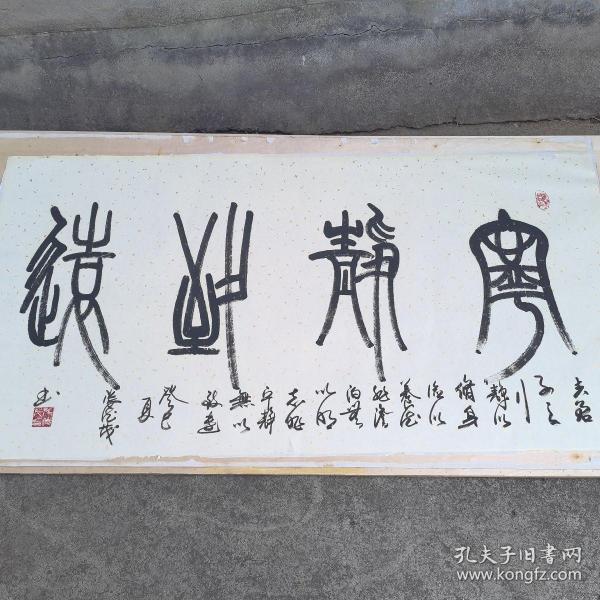 寧靜致遠
夫君
子之
行
靜以
脩身
儉以
養德
非澹
泊無
以明
志非
宁靜
無以
致遠
癸巳
夏
书
孔夫子旧书网
www.kongfz.com